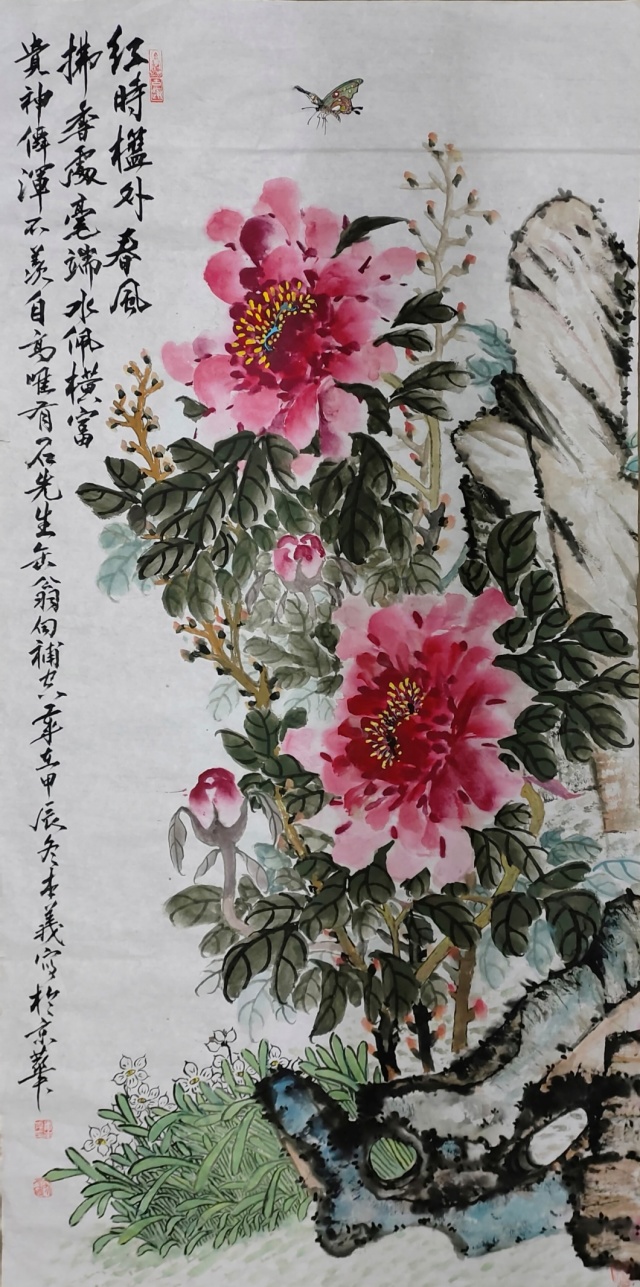 红時檻外春風
拂香處毫端水佩橫富
貴神僊渾不羨自高唯有石先生缶翁句補空 甲辰冬 義寫於京華